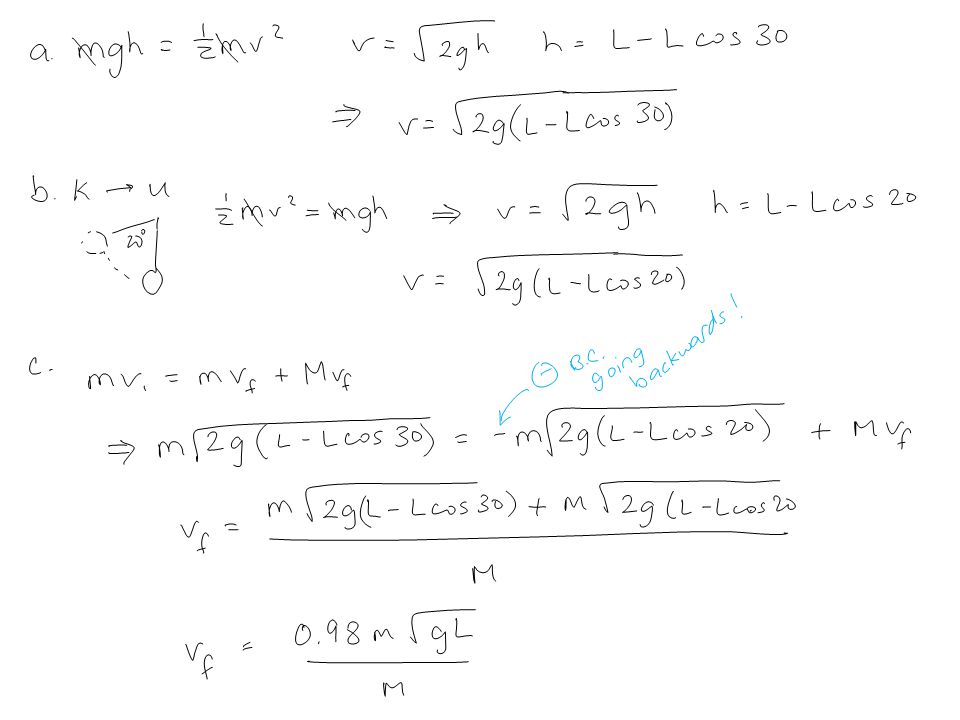 a. mgh = ½mv²   v = √2gh   h = L - L cos 30
⇒ v = √2g(L - L cos 30)
b. K → U   ½mv² = mgh ⇒ v = √2gh   h = L - L cos 20
20°
v = √2g(L - L cos 20)
⊖ B.C. going backwards!
c. mv₁ = mv_f + Mv_f
⇒ m√2g(L - L cos 30) = -m√2g(L - L cos 20) + Mv_f
v_f = m√2g(L - L cos 30) + m√2g(L - L cos 20
M
v_f = 0.98 m √gL
M